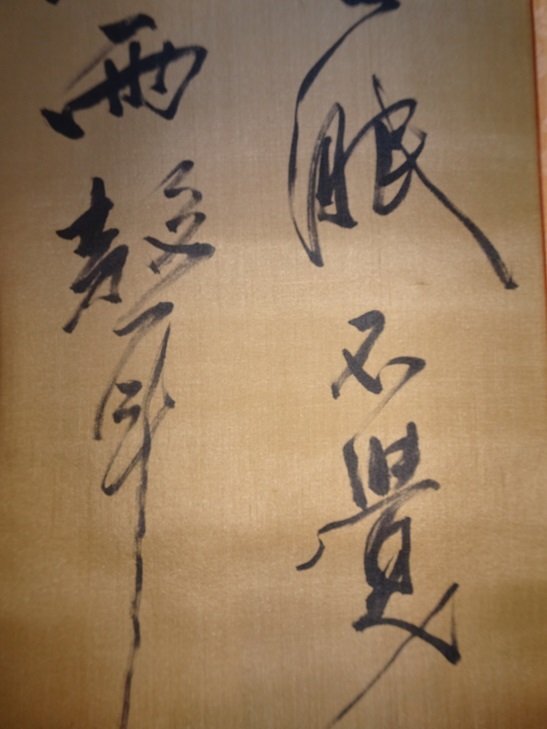 眠不覺
雨聲